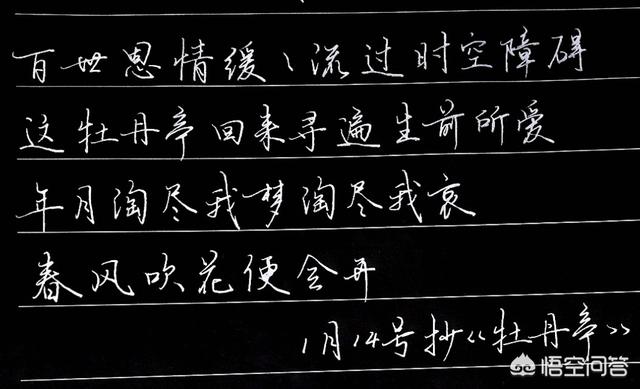 百世恩情缓缓流过时空障碍
这牡丹亭回来寻遍生前所爱
年月淘尽我梦淘尽我哀
春风吹花便会开
1月14号抄《牡丹亭》
悟空问答